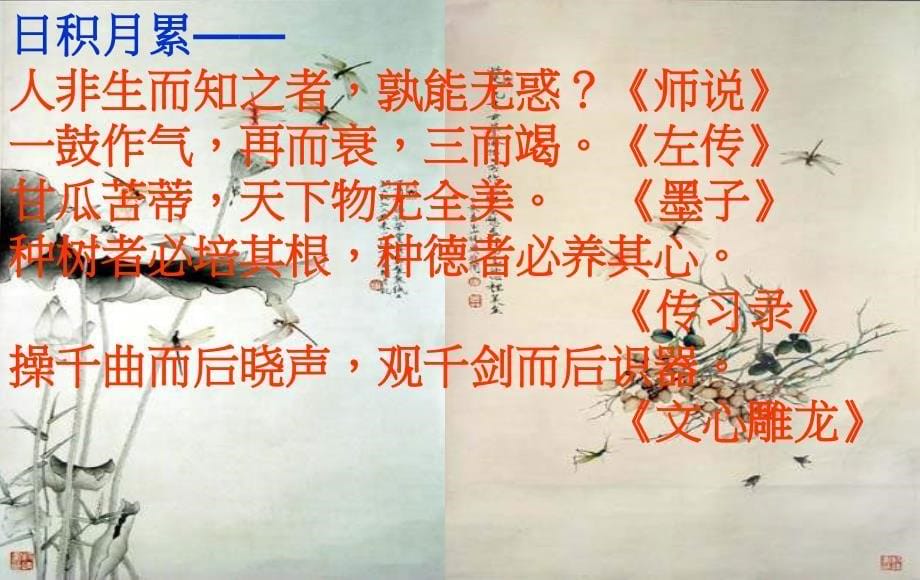 日积月累——
人非生而知之者，孰能无惑？《师说》
一鼓作气，再而衰，三而竭。《左传》
甘瓜苦蒂，天下物无全美。 《墨子》
种树者必培其根，种德者必养其心。
《传习录》
操千曲而后晓声，观千剑而后识器。
《文心雕龙》